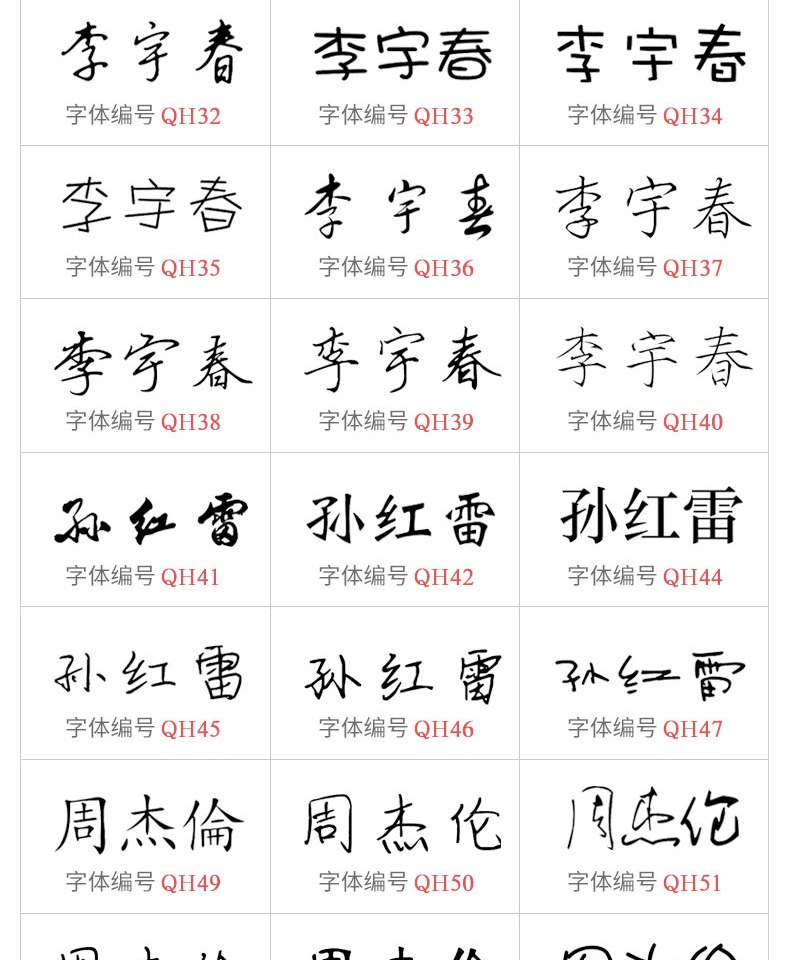 李宇春 李宇春 李宇春
字体编号 QH32 字体编号 QH33 字体编号 QH34
李宇春 李宇春 李宇春
字体编号 QH35 字体编号 QH36 字体编号 QH37
李宇春 李宇春 李宇春
字体编号 QH38 字体编号 QH39 字体编号 QH40
孙红雷 孙红雷 孙红雷
字体编号 QH41 字体编号 QH42 字体编号 QH44
孙红雷 孙红雷 孙红雷
字体编号 QH45 字体编号 QH46 字体编号 QH47
周杰倫 周杰伦 周杰伦
字体编号 QH49 字体编号 QH50 字体编号 QH51